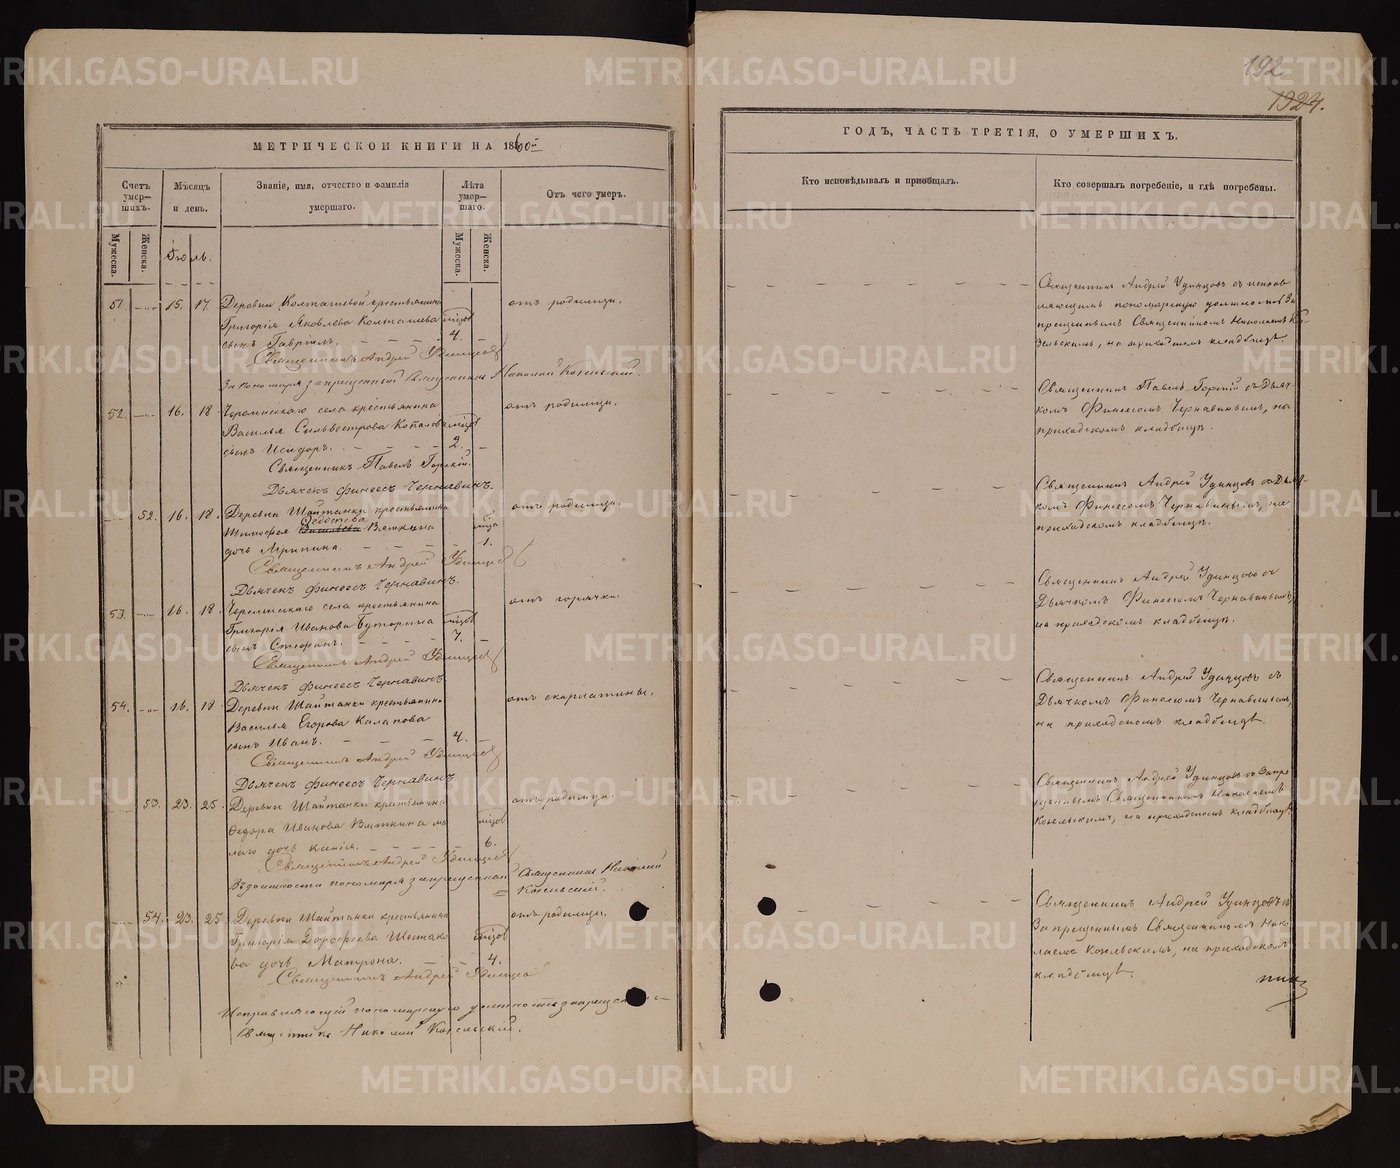 192
1924.
МЕТРИЧЕСКОЙ КНИГИ НА 1860й
Счетъ умер-шихъ.
Мѣсяцъ и день.
Званіе, имя, отчество и фамилія умершаго.
Лѣта умер-шаго.
Отъ чего умеръ.
Мужеска.
Женска.
Мужеска.
Женска.
Іюль.
51. 15. 17. Деревни Колташевой крестьянина отъ родимца.
Григорія Яковлева Колташева мѣсяцов
сынъ Гавріилъ. 4.
Священникъ Андрей Удинцов
За пономаря запрещенный Священникъ Николай Козельскій.
52. 16. 18. Черемисскаго села крестьянина отъ родимца.
Василья Сильвестрова Копалова мѣсяцов
сынъ Исидоръ. 2.
Священникъ Павелъ Горскій.
Дьячекъ Финеесъ Чернавинъ.
52. 16. 18. Деревни Шайтанки крестьянина отъ родимца.
Федотова
Тимофея Васильева Вяткина
дочь Агрипина. 1.
Священникъ Андрей Удинцов
Дьячекъ Финеесъ Чернавинъ.
53. 16. 18. Черемисскаго села крестьянина отъ горячки.
Григорія Иванова Буторина мѣсяцов
сынъ Стефанъ. 7.
Священникъ Андрей Удинцов
Дьячекъ Финеесъ Чернавинъ
54. 16. 18. Деревни Шайтанки крестьянина отъ скарлатины.
Василья Егорова Калапова
сынъ Иванъ. 4.
Священникъ Андрей Удинцов
Дьячекъ Финеесъ Чернавинъ
53. 23. 25. Деревни Шайтанки крестьянина отъ родимца.
Федора Иванова Вяткина мѣсяцов
дочь 6.
Священникъ Андрей Удинцов
Въ должности пономаря запрещенный Священникъ Николай
Козельскій.
54. 23. 25. Деревни Шайтанки крестьянина отъ родимца.
Григорія Дорофеева Шестако мѣсяцов
ва дочь Матрона. 4.
Священникъ Андрей Удинцов
Исправляющій пономарскую должность запрещенный
Священникъ Николай Козельскій.
ГОДЪ, ЧАСТЬ ТРЕТІЯ, О УМЕРШИХЪ.
Кто исповѣдывалъ и пріобщалъ.
Кто совершалъ погребеніе, и гдѣ погребены.
Священникъ Андрей Удинцовъ съ исправ
ляющимъ пономарскую должность За
прещеннымъ Священникомъ Николаемъ Ко-
зельскимъ, на приходскомъ кладбищѣ.
Священникъ Павелъ Горскій съ Дьяч
комъ Финеесомъ Чернавинымъ, на
приходскомъ кладбищѣ.
Священникъ Андрей Удинцовъ съ Дьяч
комъ Финеесомъ Чернавинымъ, на
приходскомъ кладбищѣ.
Священникъ Андрей Удинцовъ съ
Дьячкомъ Финеесомъ Чернавинымъ,
на приходскомъ кладбищѣ.
Священникъ Андрей Удинцовъ съ
Дьячкомъ Финеесомъ Чернавинымъ,
на приходскомъ кладбищѣ.
Священникъ Андрей Удинцовъ съ Запре
щеннымъ Священникомъ Николаемъ
Козельскимъ, на приходскомъ кладбищѣ.
Священникъ Андрей Удинцовъ съ
Запрещеннымъ Священникомъ Нико
лаемъ Козельскимъ, на приходскомъ
кладбищѣ.
METRIKI.GASO-URAL.RU